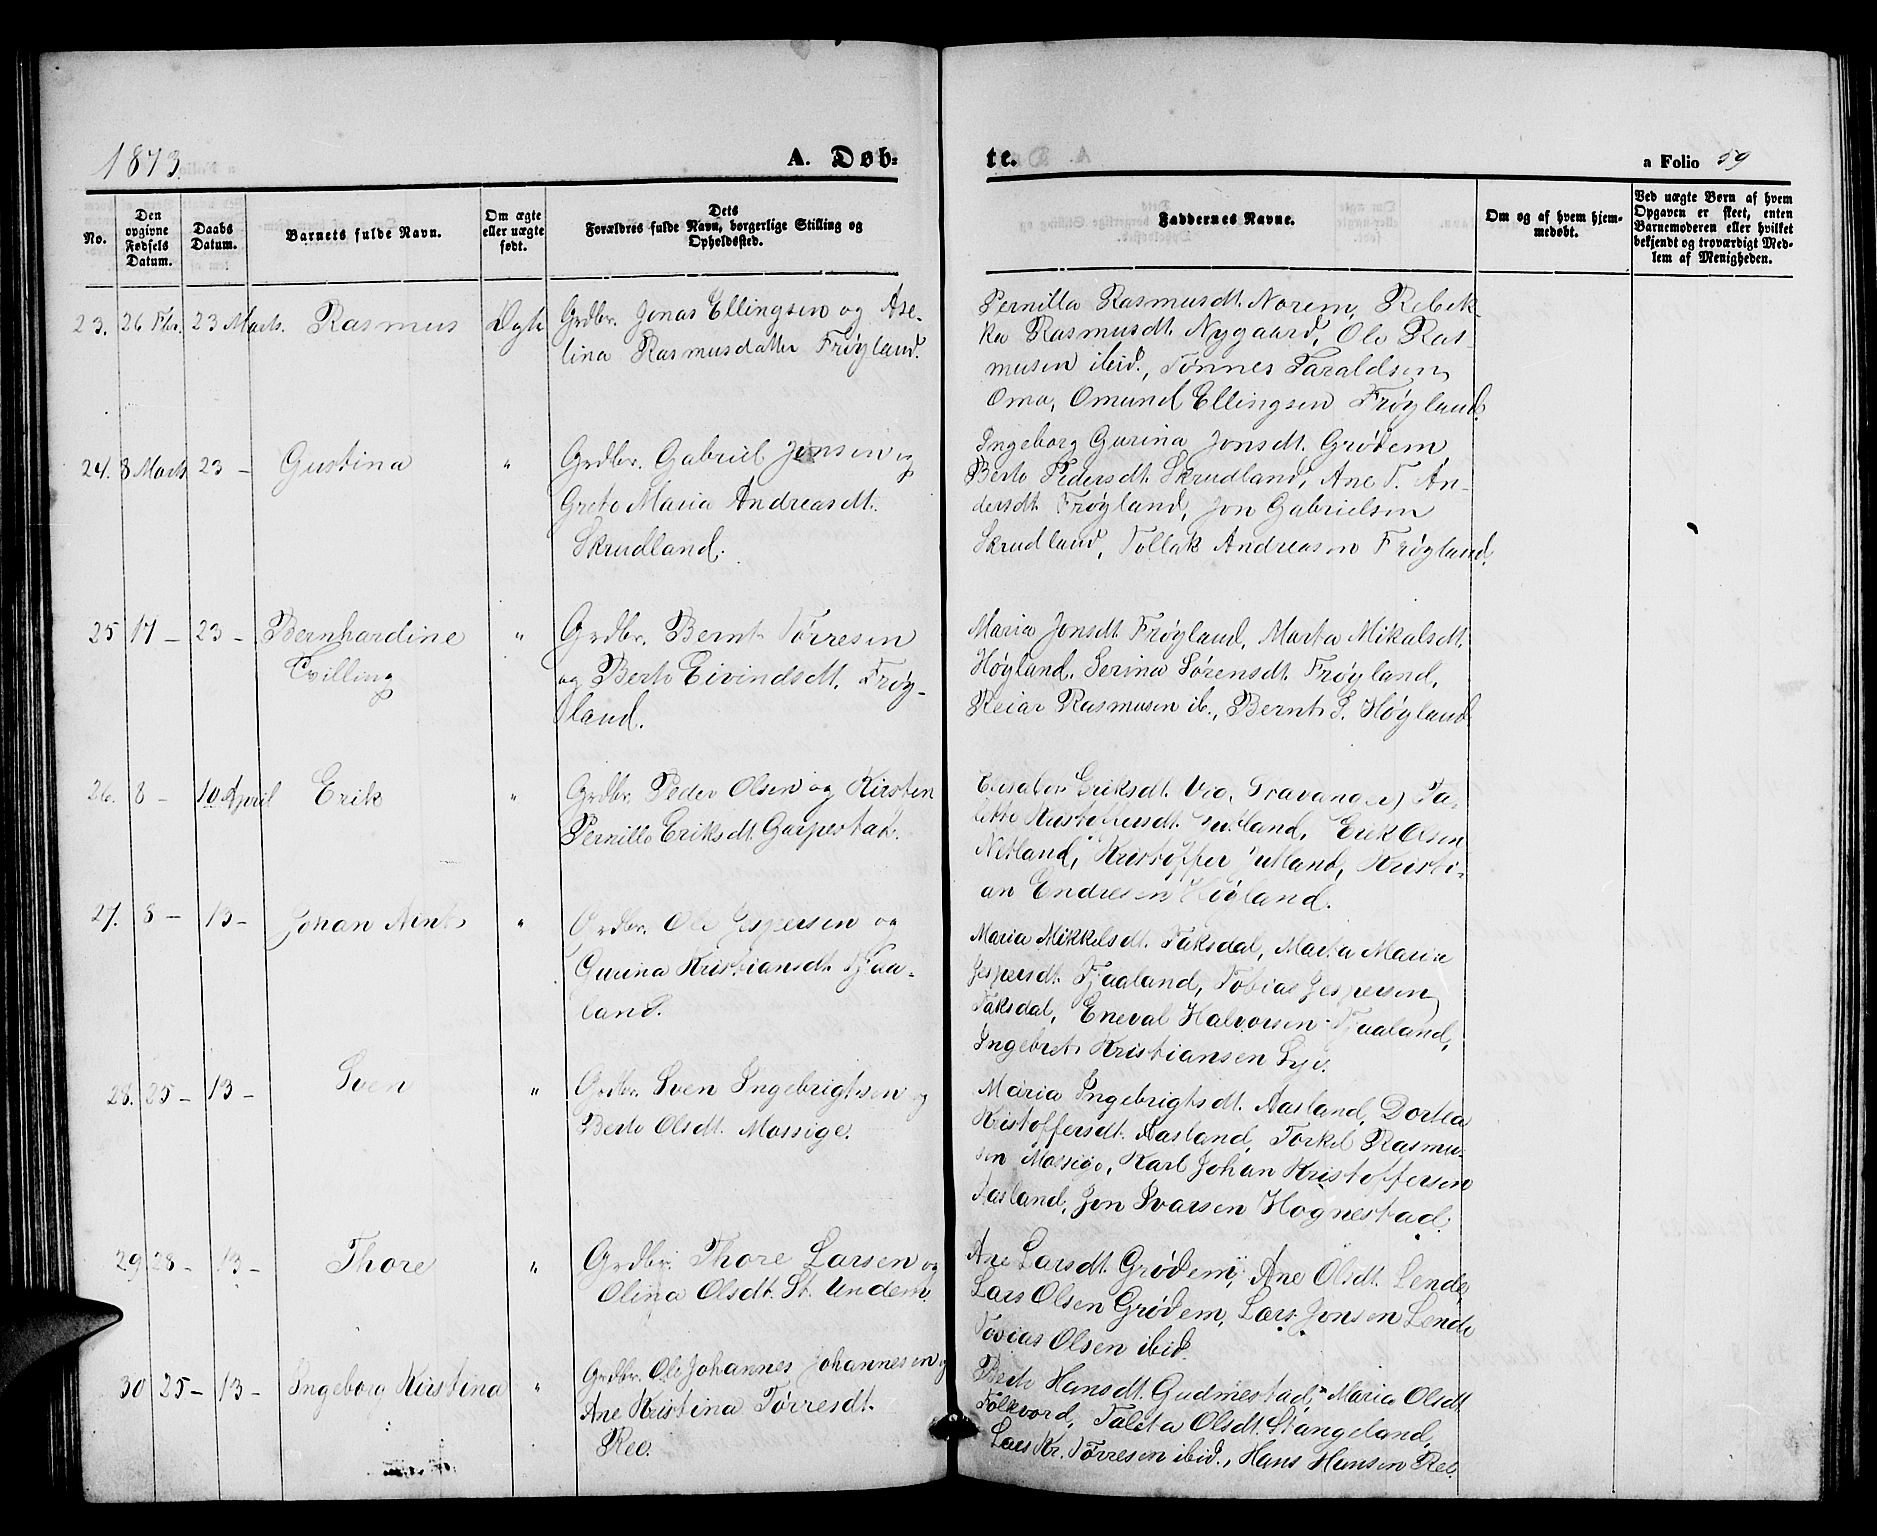 1873.
A. Døb-
te.
a Folio 59
No.
Den
opgivne
Fødsels
Datum.
Daabs
Datum.
Barnets fulde Navn.
Om ægte
eller uægte
født.
Dets
Forældres fulde Navn, borgerlige Stilling og
Opholdssted.
Faddernes Navne.
Om og af hvem hjem-
medøbt.
Ved uægte Børn af hvem
Opgaven er skeet, enten
Barnemoderen eller hvilket
bekjendt og troværdigt Med-
lem af Menigheden.
23. 26 Fbr. 23 Marts. Rasmus
Grdbr. Jonas Ellingsen og Ase-
lina Rasmusdatter Frøyland.
Pernilla Rasmusdt. Norem, Rebek-
ka Rasmusdt. Nygaard, Ole Ras-
musen ibid., Tønnes Taraldsen
Oma, Omund Ellingsen Frøyland.
24. 8 Marts 23 - Gustina "
Grdbr. Gabriel Jonsen og
Grete Maria Andreasdt.
Skrudland.
Ingeborg Gurina Jonsdt. Grødem
Berte Pedersdt. Skrudland, Ane T. An-
dersdt. Frøyland, Jon Gabrielsen
Skrudland, Tollak Andreasen Frøyland.
25 17 - 23 - Bernhardine "
Tvilling
Grdbr. Bernt Tørresen
og Berte Eivindsdt. Frøy-
land.
Maria Jonsdt. Frøyland, Marta Mikalsdt.
Høyland. Serina Sørensdt. Frøyland,
Reiar Rasmusen ib., Bernt S. Høyland.
26. 8 - 10 April Erik "
Grdbr. Peder Olsen og Kirsten
Pernille Eriksdt. Garpestad.
Elisabet Eriksdt. Stavanger,
Kristoffersdt. Erik Olsen
Netland, Kristoffer Kristi-
an Endresen Høyland.
27. 8 - 13 - Johan "
Grdbr. Ole Jespersen og
Gurina Kristiansdt. Tjaa-
land.
Maria Mikkelsdt. Taksdal, Marta Maria
Jespersdt. Tjaaland, Tobias Jespersen
Taksdal, Eneval Halvorsen Tjaaland,
Ingebret Kristiansen Lye.
28. 25 - 13 - Sven "
Grdbr. Sven Ingebrigtsen og
Berte Olsdt. Mossige.
Maria Ingebrigtsdt. Aasland, Dortea
Kristoffersdt. Aasland, Torkel Rasmu-
sen Mossige, Karl Johan Kristoffersen
Aasland, Jon Ivarsen Hognestad.
29 28 - 13 - Thore "
Grdbr. Thore Larsen og
Olina Olsdt. St. Undem.
Ane Larsdt. Grødem, Ane Olsdt. Lende,
Lars Olsen Grødem, Lars Jonsen Lende
Tobias Olsen ibid.
30 25 - 13 - Ingeborg Kirstina "
Grdbr. Ole Johannes Johannesen og
Ane Kristina Tørresdt.
Ree.
Berte Hansdt. Gudmestad, Maria Olsdt.
Folkvord, Taleta Olsdt. Stangeland,
Lars Kr. Tørresen ibid., Hans Hansen Ree.